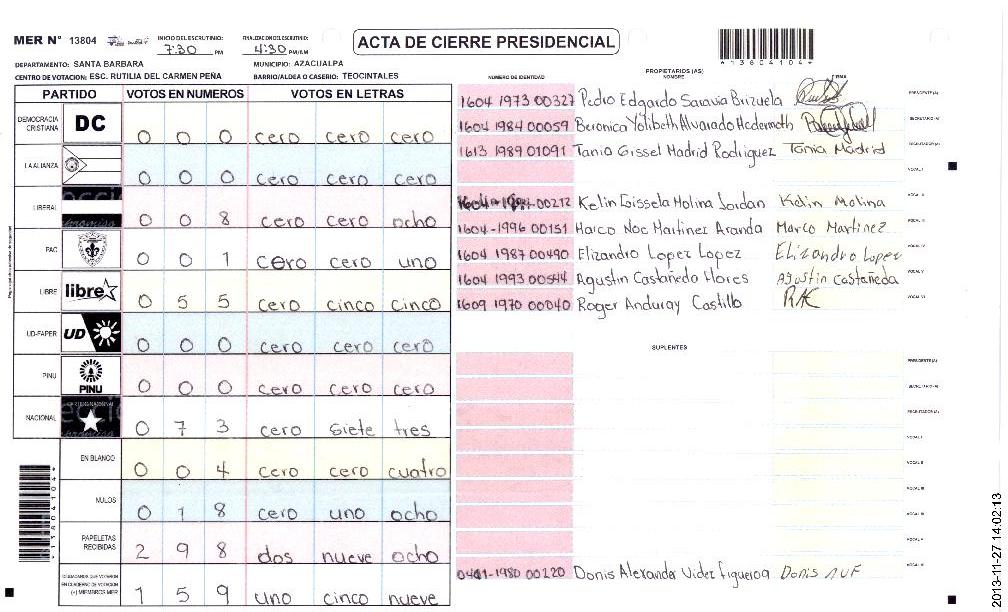 MER N° 13804
INICIO DEL ESCRUTINIO:
7:30 PM
FINALIZACION DEL ESCRUTINIO:
4:30 PM/AM
ACTA DE CIERRE PRESIDENCIAL
*13804104*
DEPARTAMENTO: SANTA BARBARA
MUNICIPIO: AZACUALPA
CENTRO DE VOTACION: ESC. RUTILIA DEL CARMEN PEÑA
BARRIO/ALDEA O CASERIO: TEOCINTALES
PARTIDO VOTOS EN NUMEROS VOTOS EN LETRAS
DEMOCRACIA CRISTIANA DC 0 0 0 cero cero cero
LA ALIANZA 0 0 0 cero cero cero
LIBERAL 0 0 8 cero cero ocho
PAC 0 0 1 cero cero uno
LIBRE libre 0 5 5 cero cinco cinco
UD-FAPER UD 0 0 0 cero cero cero
PINU PINU 0 0 0 cero cero cero
NACIONAL 0 7 3 cero siete tres
EN BLANCO 0 0 4 cero cero cuatro
NULOS 0 1 8 cero uno ocho
PAPELETAS RECIBIDAS 2 9 8 dos nueve ocho
CIUDADANOS QUE VOTARON EN CUADERNO DE VOTACION (+) MIEMBROS MER 1 5 9 uno cinco nueve
*13804104*
PROPIETARIOS (AS)
NUMERO DE IDENTIDAD NOMBRE FIRMA
1604 1973 00327 Pedro Edgardo Saravia Brizuela PRESIDENTE (A)
1604 1984 00059 Beronica Yolibeth Alvarado Hedemoth SECRETARIO (A)
1613 1989 01091 Tania Gissel Madrid Rodriguez Tania Madrid ESCRUTADOR (A)
VOCAL I
00212 Kelin Loissela Molina Jordan Kelin Molina VOCAL II
1604-1996 00151 Marco Noe Martinez Aranda Marco Martinez VOCAL III
1604 1987 00490 Elizandro Lopez Lopez Elizandro Lopez VOCAL IV
1604 1993 00544 Agustin Castañedo Flores Agustin Castañeda VOCAL V
1609 1970 00040 Roger Anduray Castillo RAC VOCAL VI
SUPLENTES
PRESIDENTE (A)
SECRETARIO (A)
ESCRUTADOR (A)
VOCAL I
VOCAL II
VOCAL III
VOCAL IV
VOCAL V
0401-1980 00220 Donis Alexander Videz Figueroa Donis AVF VOCAL VI
2013-11-27 14:02:13